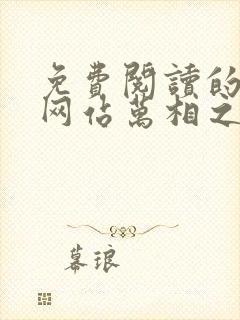 免費閱讀的
网佔萬相之
幕琅